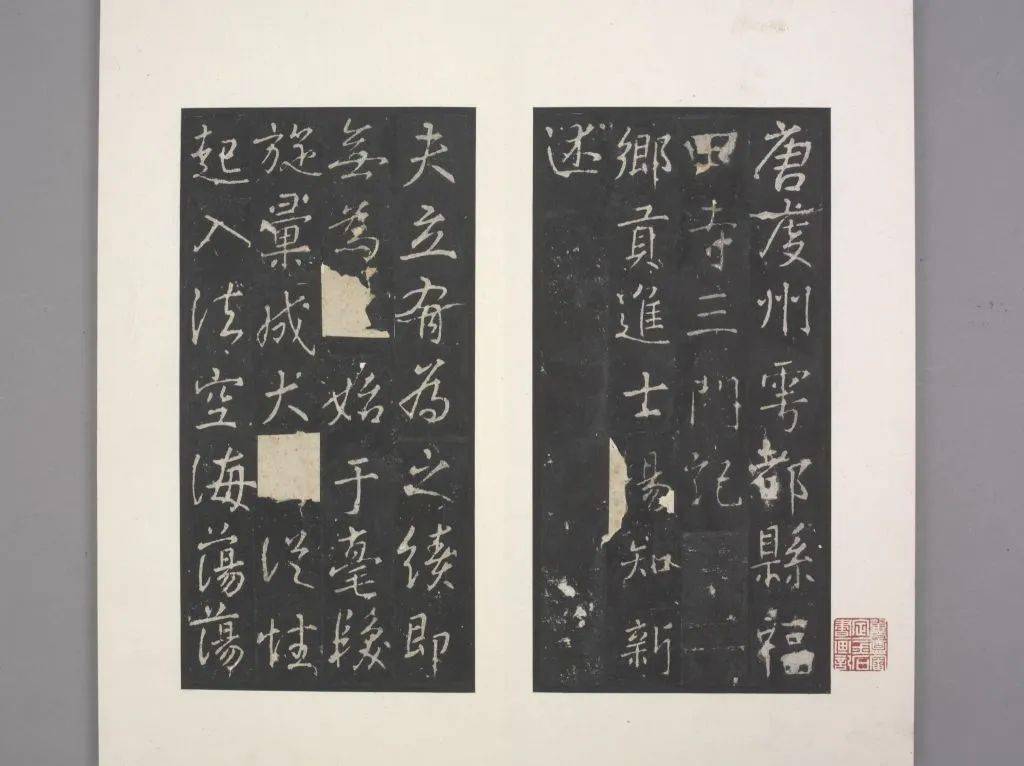 唐虔州雩都縣福
田寺三門記
鄉貢進士知新
述
夫立有為之績即
無為始于毫髮
旋彙成大從性
起入法空海蕩蕩